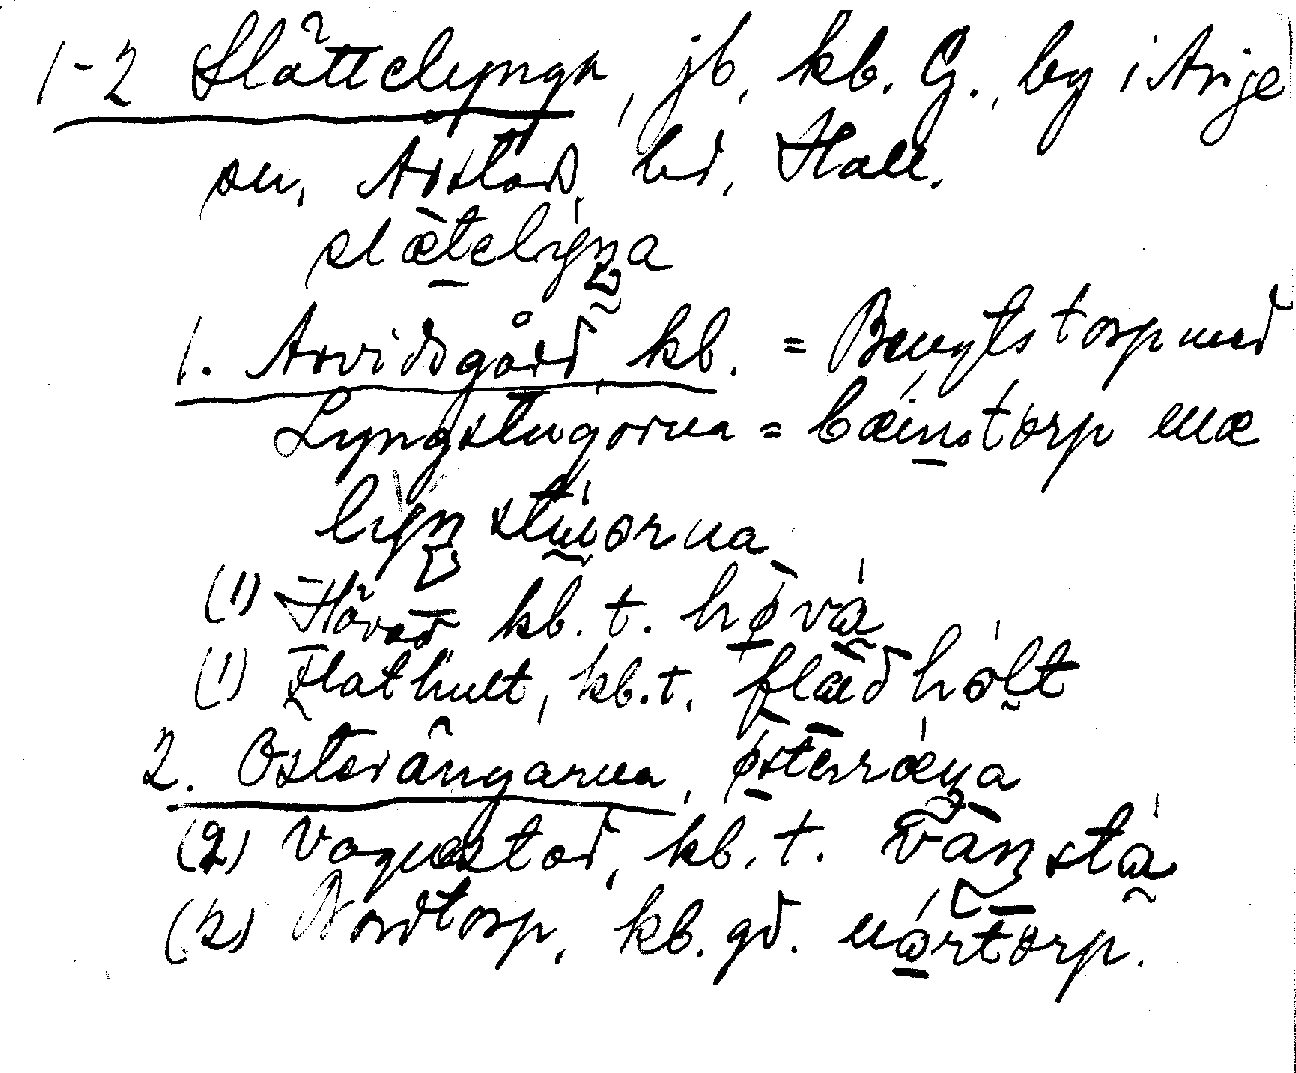 1-2 Slättelynga, jb, kb. G., by i Arije
sn, Årstad hd, Hall.
slætelyŋa
1. Arvidsgård, kb. = Bengtstorp med
Lyngstugorna = bæinstorp mæ
lyŋstuorna
(1) Hövad kb. t. høva
(1) Flathult, kb. t. flædholt
2. Österängarna, østerræŋa
(2) Vagnstad, kb. t. vaŋsta
(2) Nordtorp, kb. gd. nårtorp.